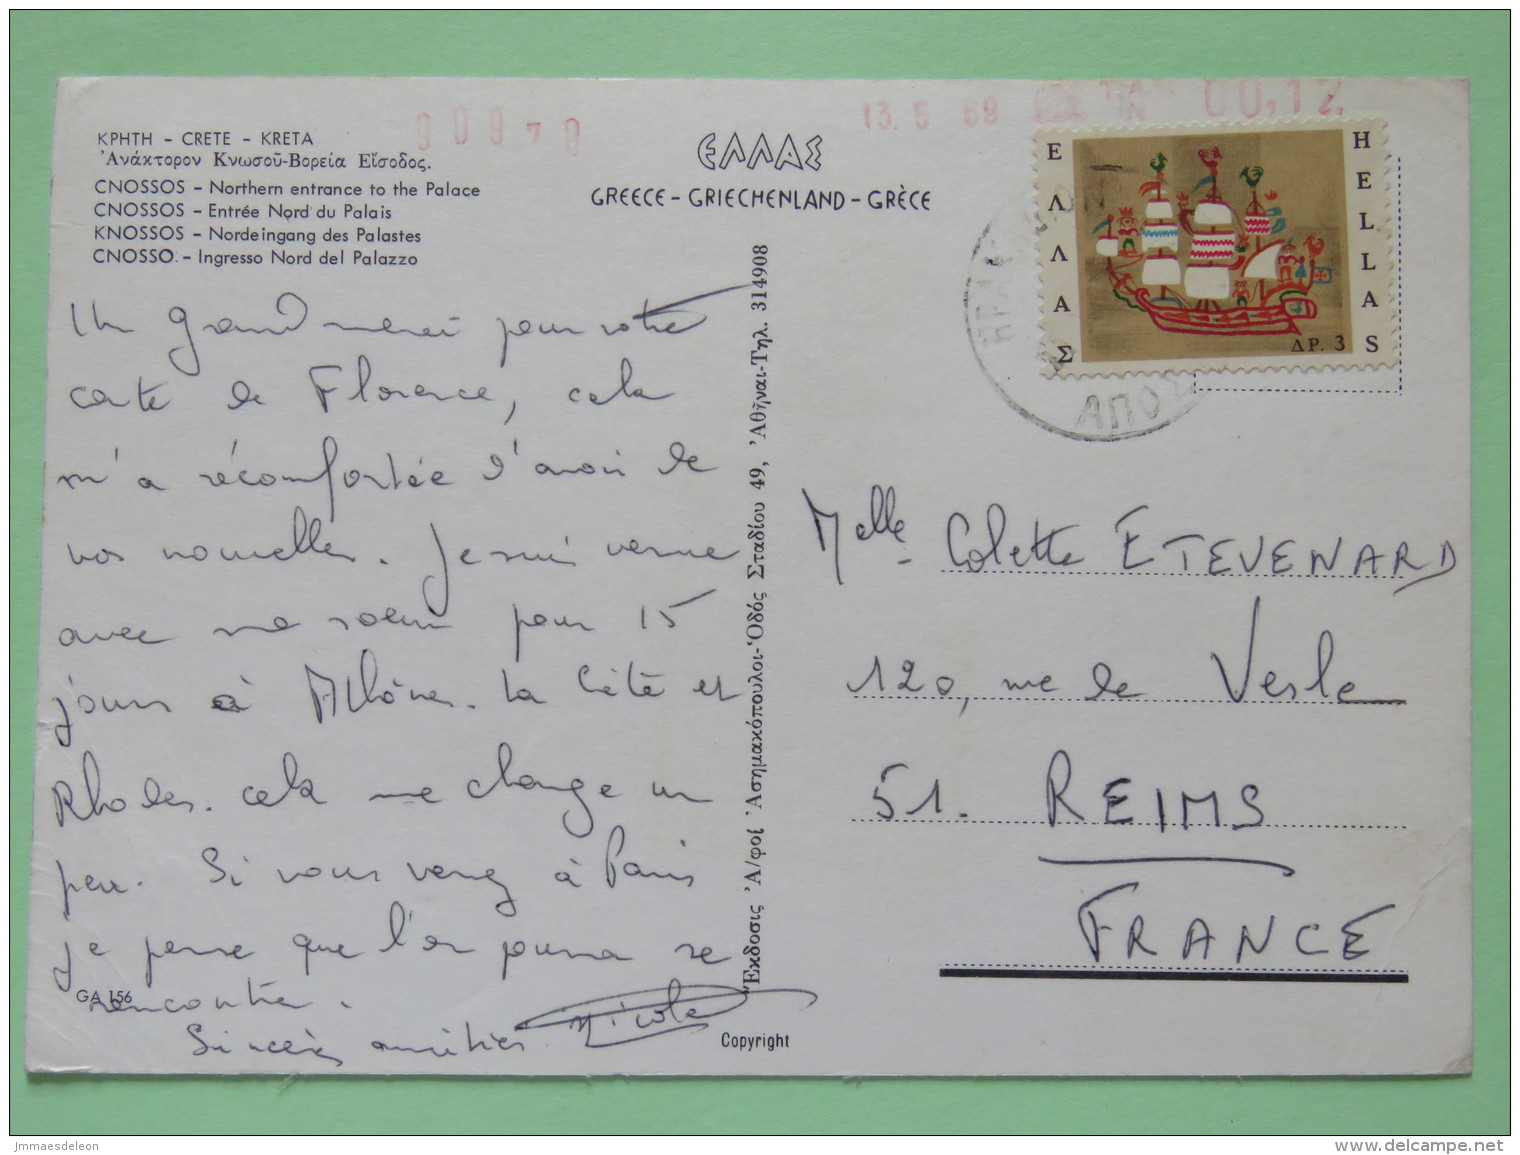 ΚΡΗΤΗ - CRETE - KRETA
Ἀνάκτορον Κνωσοῦ-Βορεία Εἴσοδος.
CNOSSOS - Northern entrance to the Palace
CNOSSOS - Entrée Nord du Palais
KNOSSOS - Nordeingang des Palastes
CNOSSO - Ingresso Nord del Palazzo
ΕΛΛΑΣ
GREECE - GRIECHENLAND - GRÈCE
13. 5 69
00,12
ΕΛΛΑΣ
HELLAS
ΔΡ. 3
ΑΠΟΣ
Un grand merci pour votre
carte de Florence, cela
m'a réconfortée d'avoir de
vos nouvelles. Je suis venue
avec ma soeur pour 15
jours à Athènes. la Crète et
Rhodes. cela me change un
peu. Si vous venez à Paris
je pense que l'on pourra se
rencontrer.
Sincères amitiés Nicole
GA 156
Ἔκδοσις Ἀ/φοί Ἀσημακόπουλοι-Ὁδός Σταδίου 49, Ἀθῆναι-Τηλ. 314908
Copyright
Melle Colette ETEVENARD
120, rue de Vesle
51. REIMS
FRANCE
jmmaesdeleon
www.delcampe.net